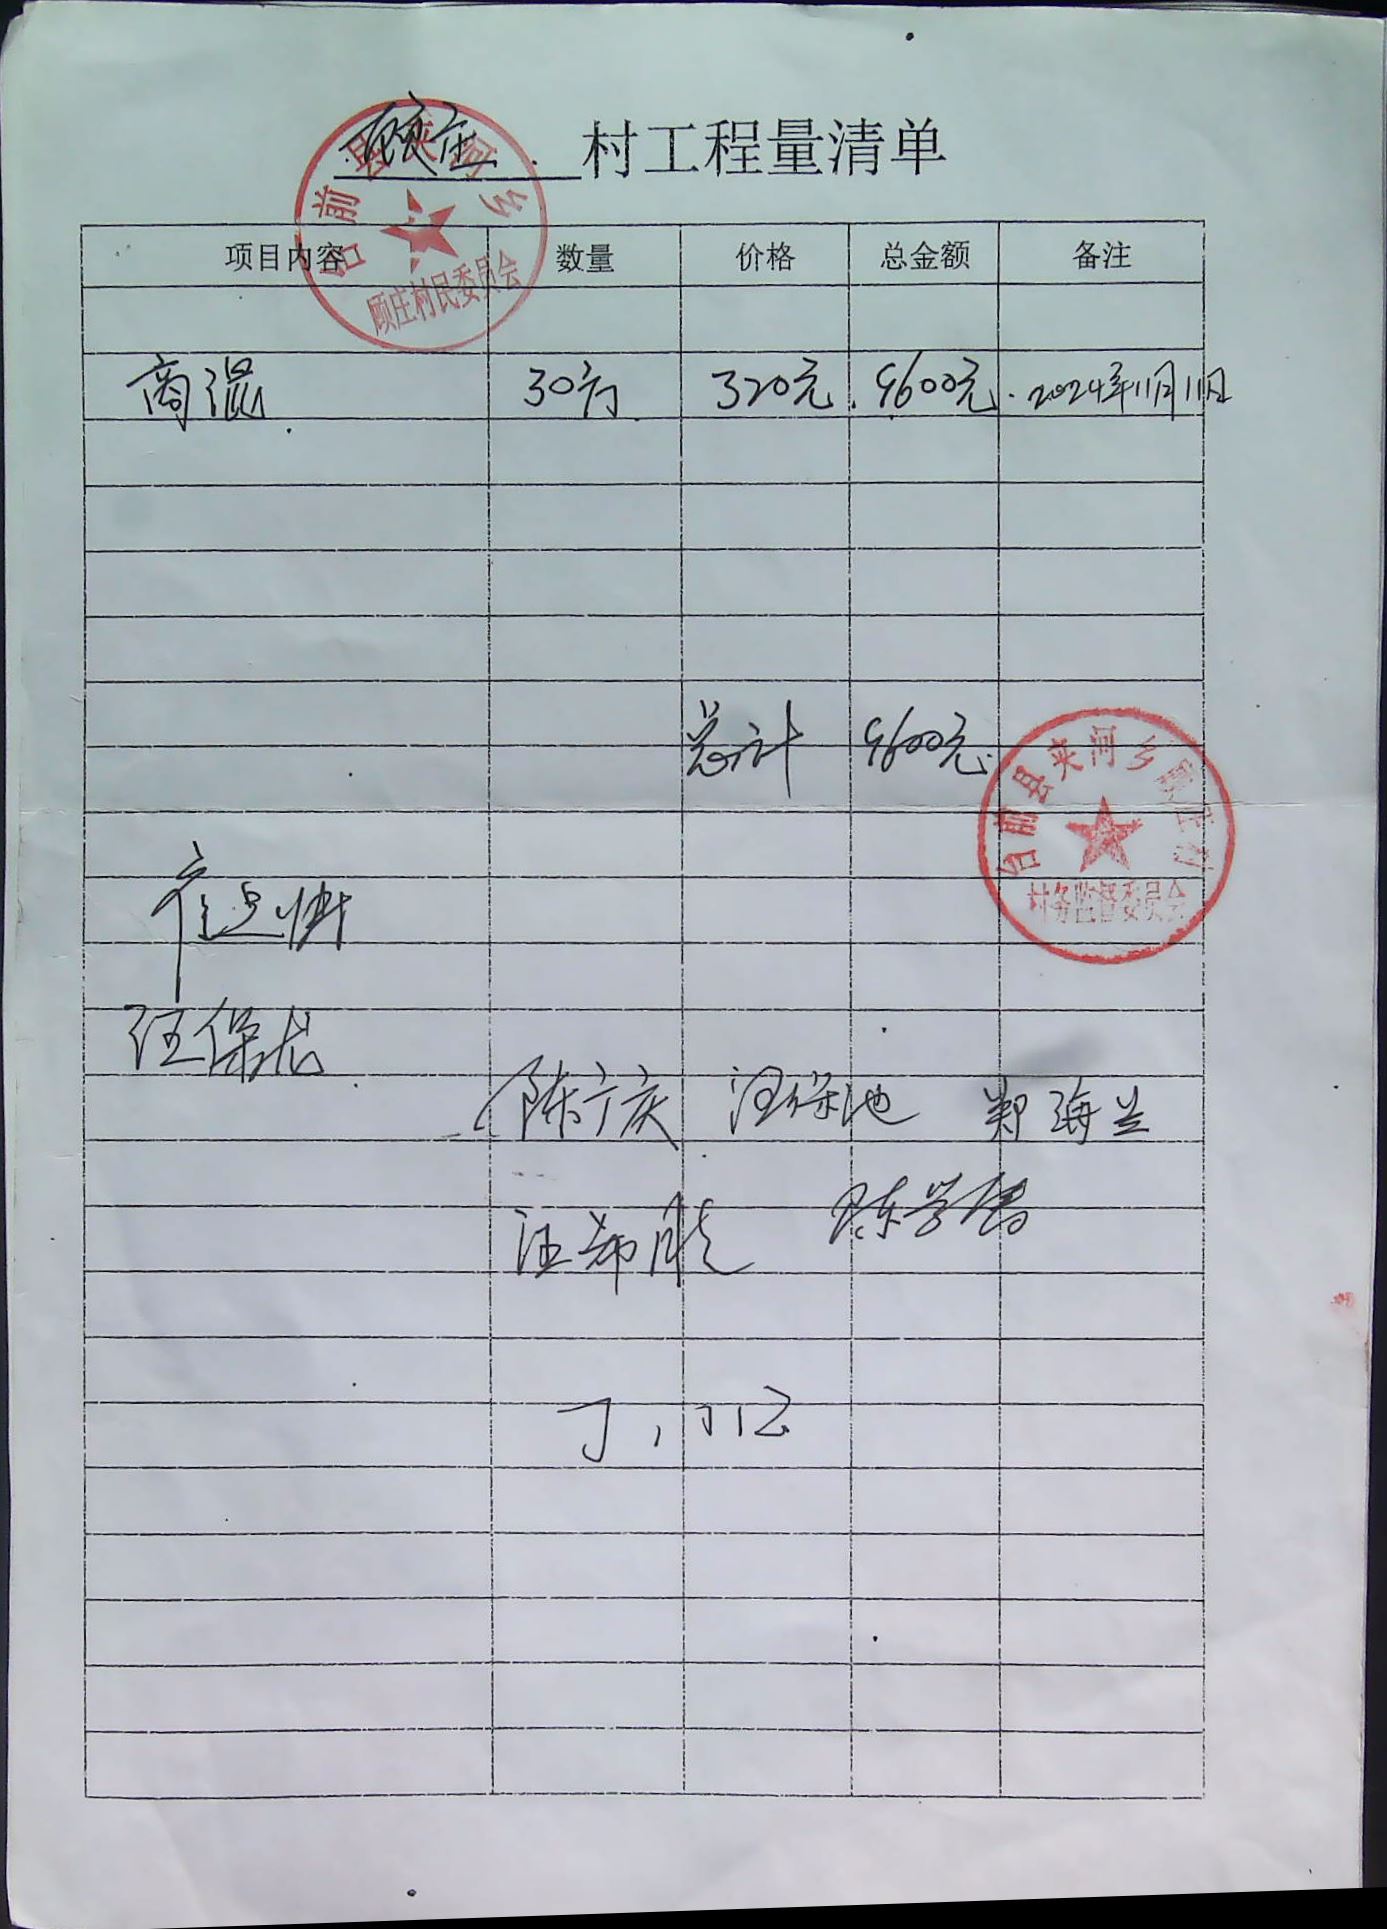 顾庄 村工程量清单
台前县夹河乡
顾庄村民委员会
项目内容 数量 价格 总金额 备注
商混 30方 320元 9600元 2024年11月11日
总计 9600元
台前县夹河乡顾庄村
村务监督委员会
汪保龙
陈广庆 汪保池 郑海兰
陈学